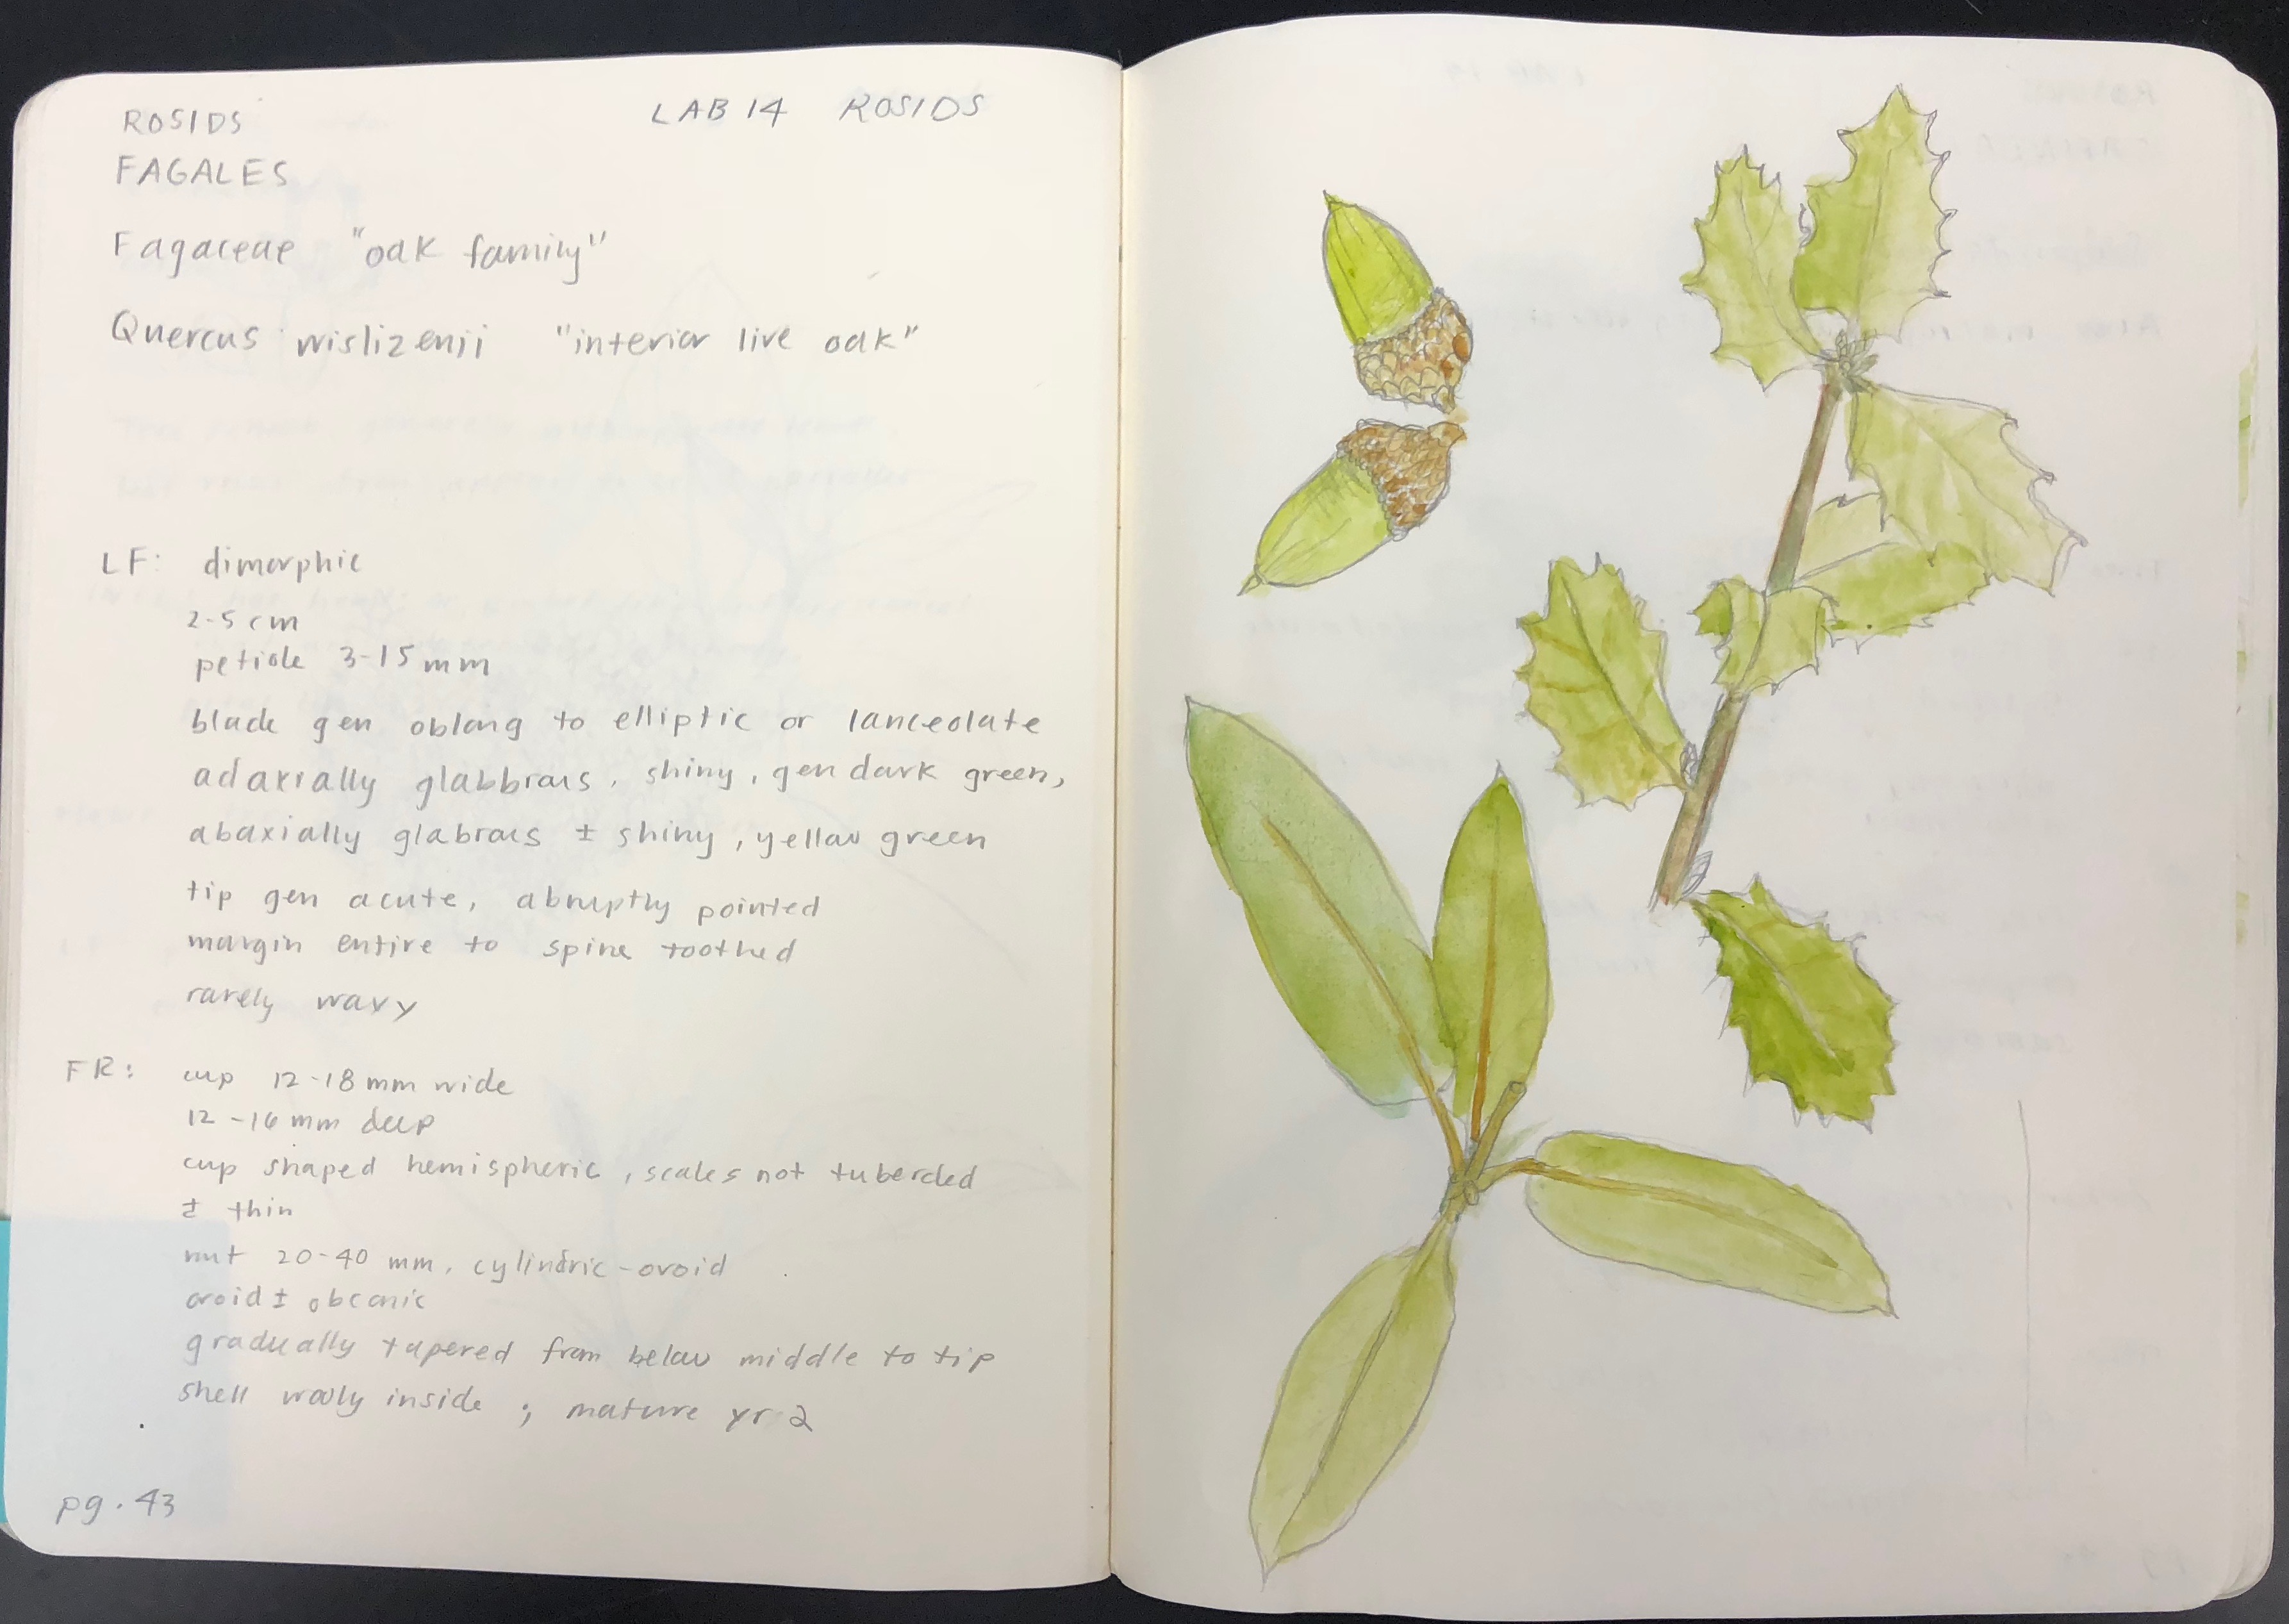 ROSIDS
LAB 14 ROSIDS
FAGALES
Fagaceae "oak family"
Quercus wislizenii "interior live oak"
LF: dimorphic
2-5 cm
petiole 3-15 mm
blade gen oblong to elliptic or lanceolate
adaxially glabbrous, shiny, gen dark green,
abaxially glabrous ± shiny, yellow green
tip gen acute, abruptly pointed
margin entire to spine toothed
rarely wavy
FR: cup 12-18 mm wide
12-16 mm deep
cup shaped hemispheric, scales not tubercled
± thin
nut 20-40 mm, cylindric-ovoid
ovoid ± obconic
gradually tapered from below middle to tip
shell wooly inside; mature yr 2
pg. 43